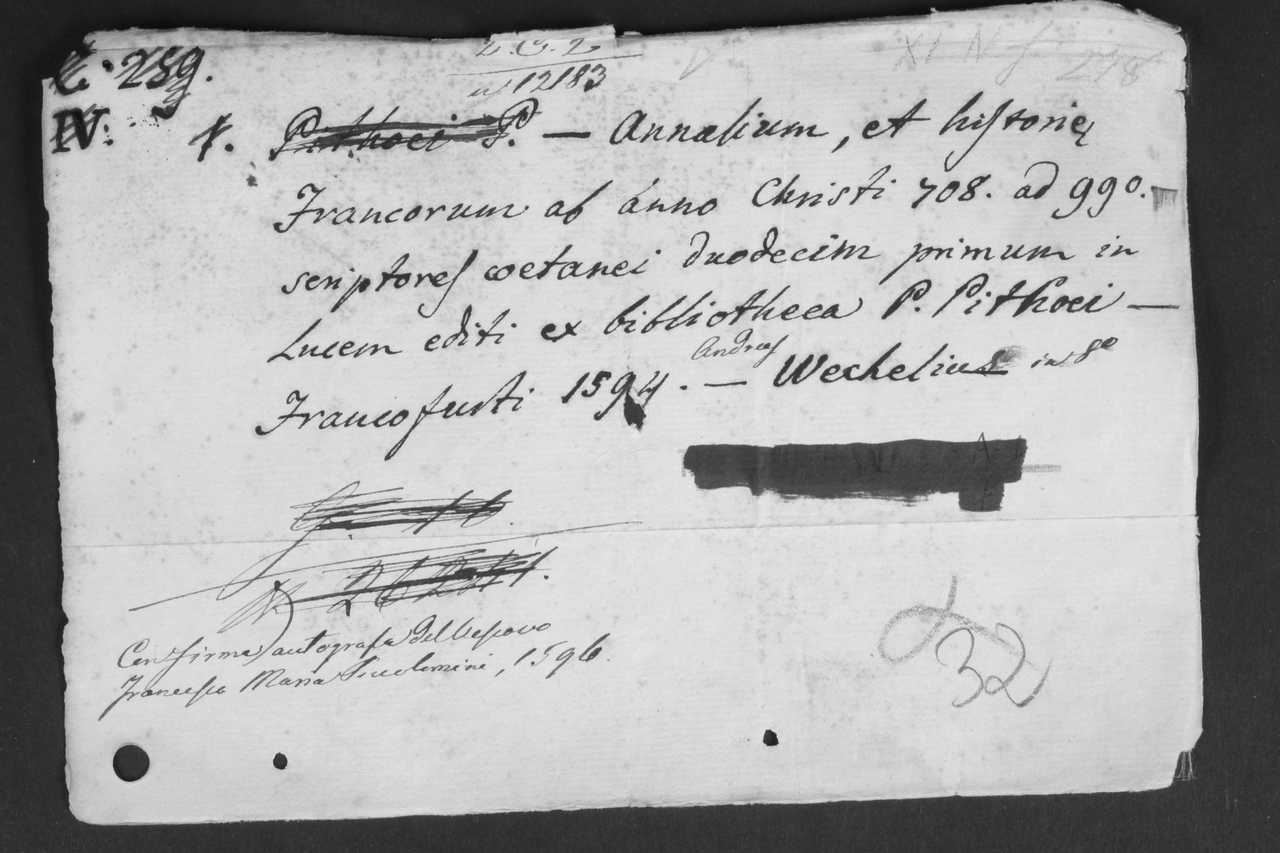 259.
IV.
12183
278
1. Pithoei P. — Annalium, et historię
Francorum ab anno Christi 708. ad 990.
scriptores coetanei duodecim primum in
lucem editi ex bibliotheca P. Pithoei —
Andreas
Francofurti 1594. — Wechelius in 8°
Con firma autografa del Vescovo
Francesco Maria Piccolomini, 1596.
32